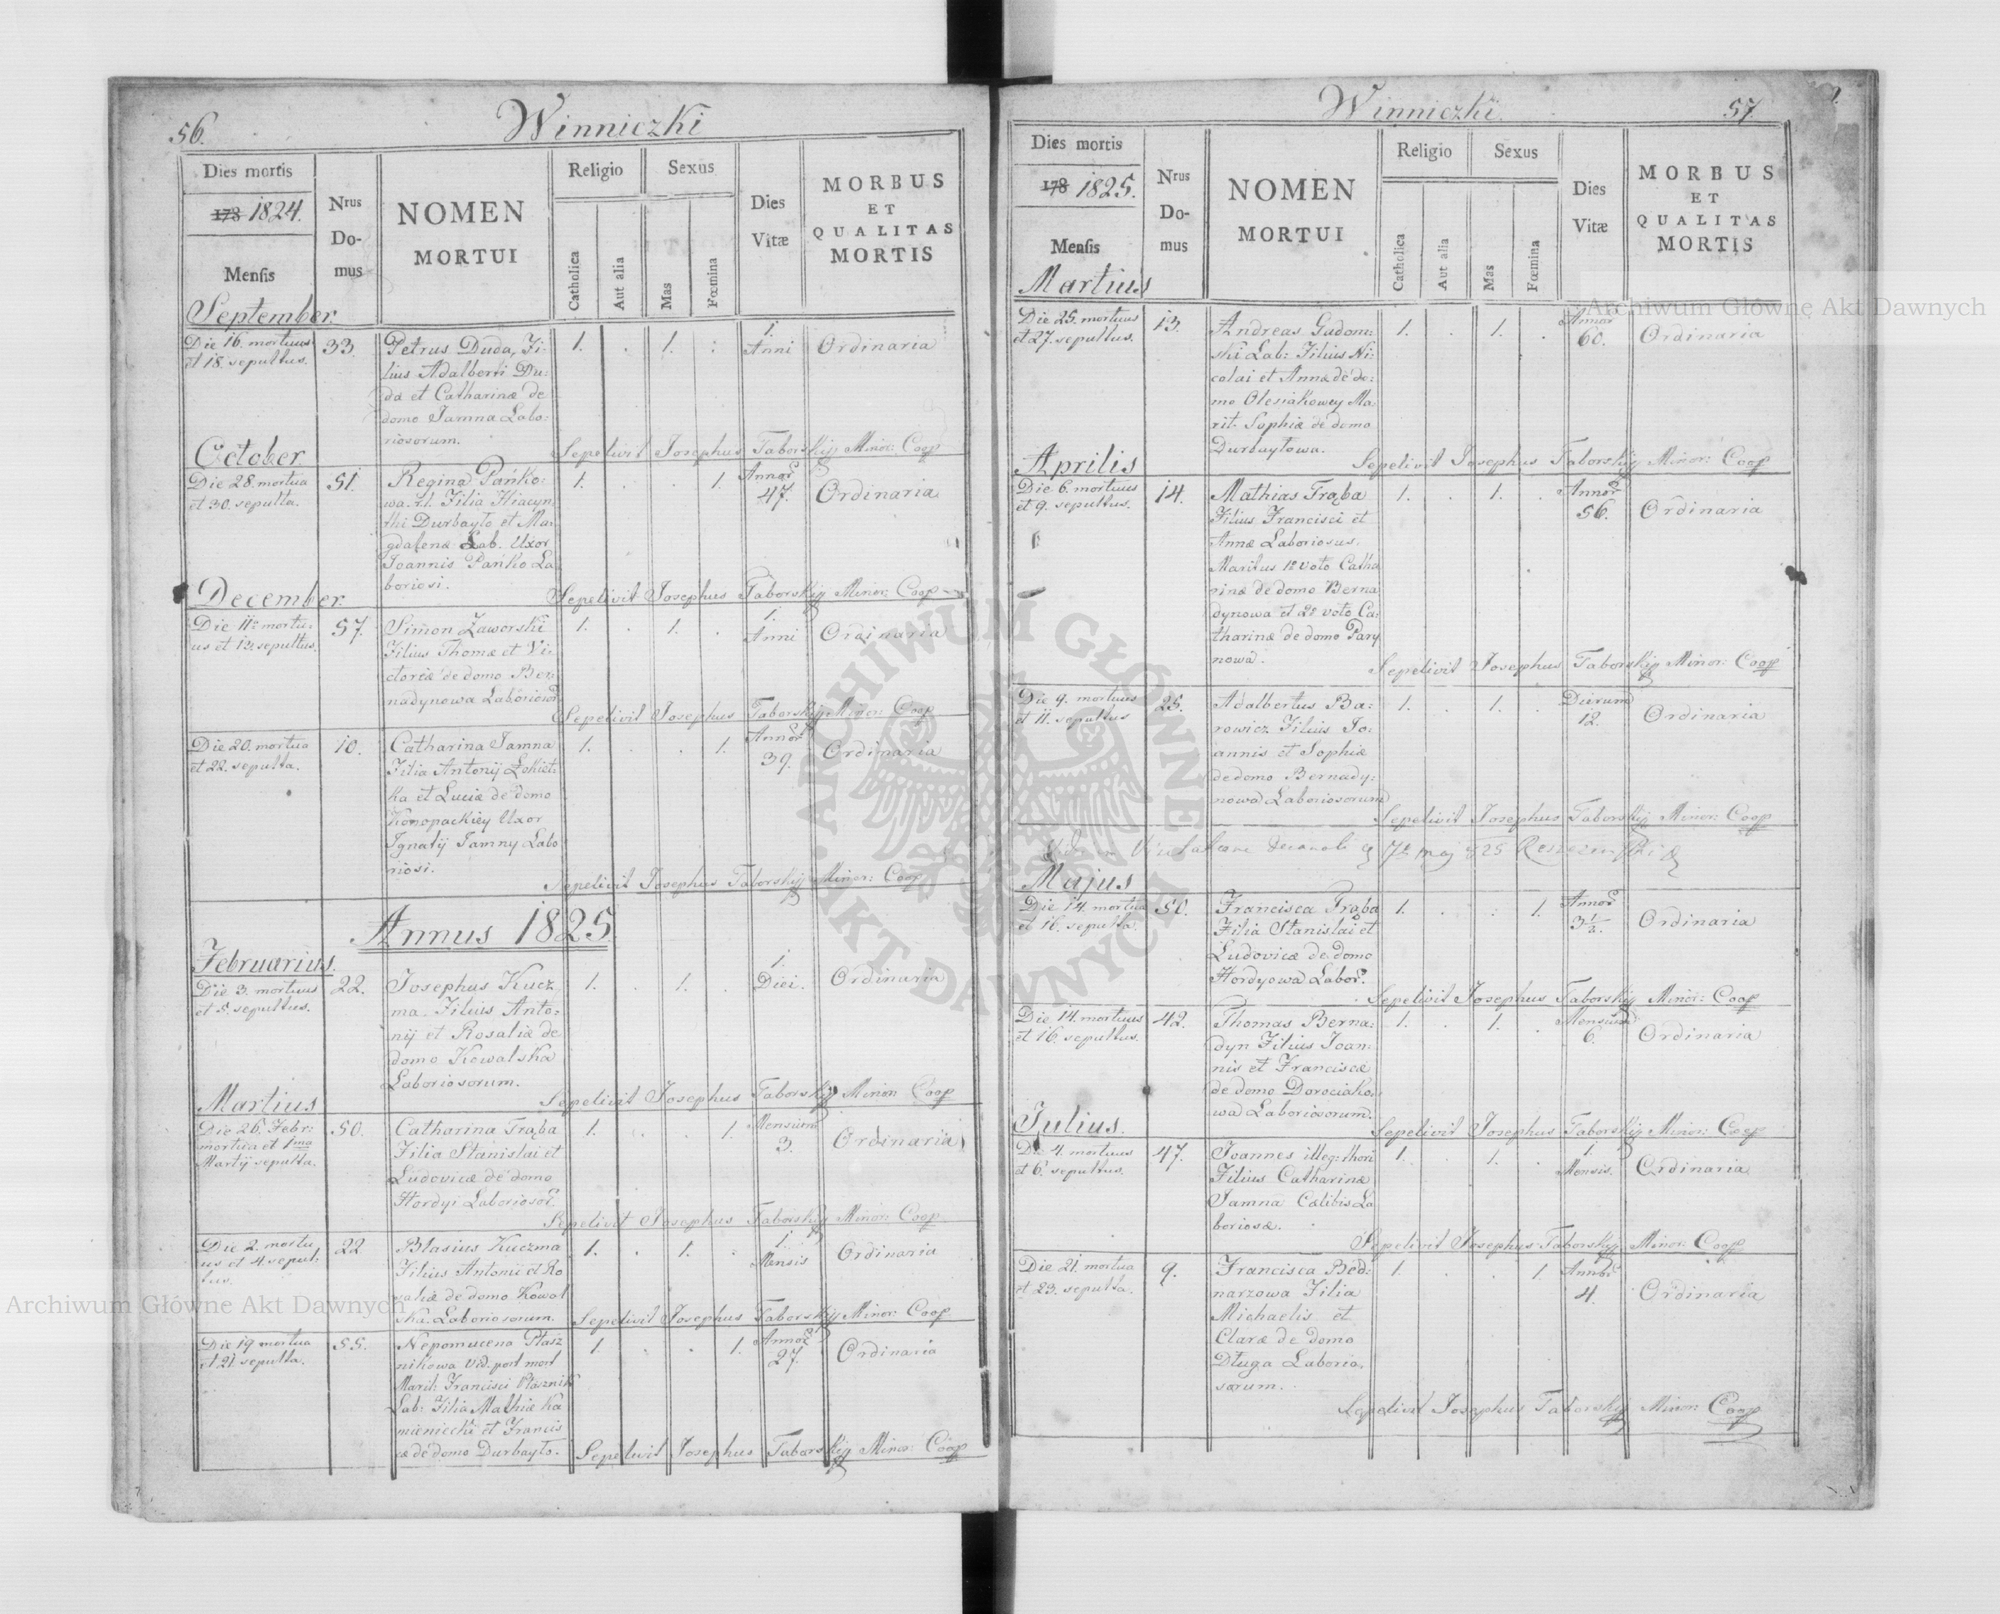 56.
Winniczki
Dies mortis
178 1824.
Mensis
Nrus
Do-
mus
NOMEN
MORTUI
Religio
Catholica
Aut alia
Sexus
Mas
Fœmina
Dies
Vitæ
MORBUS
ET
QUALITAS
MORTIS
September.
Die 16. mortuus
et 18. sepultus.
33.
Petrus Duda, Fi-
lius Adalberti Du-
da et Catharinæ de
domo Jamna Labo-
riosorum.
1. . 1. .
1.
Anni
Ordinaria
Sepelivit Josephus Taborskij Minor: Coop
October
Die 28. mortua
et 30. sepulta.
51.
Regina Pańko-
wa. r.l. Filia Hiacyn-
thi Durbayło et Ma-
gdalenæ Lab. Uxor
Joannis Pańko La
boriosi.
1. . . 1.
Annor
47.
Ordinaria
Sepelivit Josephus Taborskij Minor: Coop
December.
Die 11a mortu-
us et 12. sepultus.
57.
Simon Zaworski
Filius Thomæ et Vi-
ctoriæ de domo Ber-
nadynowa Laborioso
1. . 1. .
1.
Anni
Ordinaria
Sepelivit Josephus Taborskij Minor: Coop
Die 20. mortua
et 22. sepulta.
10.
Catharina Jamna
Filia Antonij Łokiet-
ka et Luciæ de domo
Konopackiey Uxor
Ignatij Jamny Labo
riosi.
1. . . 1.
Annor
39.
Ordinaria
Sepelivit Josephus Taborskij Minor: Coop
Annus 1825.
Februarius.
Die 3. mortuus
et 5. sepultus.
22.
Josephus Kucz
ma. Filius Anto-
nij et Rosaliæ de
domo Kowalska
Laboriosorum.
1. . 1. .
1.
Diei.
Ordinaria
Sepelivit Josephus Taborskij Minor: Coop
Martius
Die 26. Febr:
mortua et 1ma
Martij sepulta.
50.
Catharina Trąba
Filia Stanislai et
Ludovicæ de domo
Hordyi Laboriosor.
1. . . 1.
Mensium
3.
Ordinaria
Sepelivit Josephus Taborskij Minor: Coop
Die 2. mortu
us et 4. sepul-
tus.
22
Blasius Kuczma
Filius Antonii et Ro
saliæ de domo Kowal
ska. Laboriosorum.
1. . 1. .
1.
Mensis
Ordinaria
Sepelivit Josephus Taborskij Minor: Coop
Die 19 mortua
et 21 sepulta.
55.
Nepomucena Ptasz
nikowa Vid. post mort
Marit: Francisci Ptasznik
Lab: Filia Mathiæ Ka
mienicki et Francis
cæ de domo Durbayło.
1. . . 1.
Annor
27.
Ordinaria
Sepelivit Josephus Taborskij Minor: Coop
Winniczki.
57.
Dies mortis
178 1825.
Mensis
Nrus
Do-
mus
NOMEN
MORTUI
Religio
Catholica
Aut alia
Sexus
Mas
Fœmina
Dies
Vitæ
MORBUS
ET
QUALITAS
MORTIS
Martius
Die 25. mortuus
et 27. sepultus.
13.
Andreas Gudom-
ski Lab: Filius Ni-
colai et Annæ de do-
mo Olesiakowey Ma-
rit. Sophiæ de domo
Durbayłowa.
1. . 1. .
Annor
60.
Ordinaria
Sepelivit Josephus Taborskij Minor: Coop
Aprilis
Die 6. mortuus
et 9. sepultus.
14.
Mathias Trąba
Filius Francisci et
Annæ Laboriosus.
Maritus 1º voto Catha
rinæ de domo Berna
dynowa et 2º voto Ca-
tharinæ de domo Pary
nowa.
1. . 1. .
Annor
56.
Ordinaria
Sepelivit Josephus Taborskij Minor: Coop
Die 9. mortuus
et 11. sepultus
25.
Adalbertus Ba-
rowicz Filius Jo-
annis et Sophiæ
de domo Bernady-
nowa Laboriosorum
1. . 1. .
Dierum
12.
Ordinaria
Sepelivit Josephus Taborskij Minor: Coop
Majus
Die 14. mortua
et 16. sepulta.
50.
Francisca Trąba
Filia Stanislai et
Ludovicæ de domo
Hordyowa Labor.
1. . . 1.
Annor
3½.
Ordinaria
Sepelivit Josephus Taborskij Minor: Coop
Die 14. mortuus
et 16. sepultus.
42.
Thomas Berna-
dyn Filius Joan-
nis et Franciscæ
de domo Dorociako-
wa Laboriosorum.
1. . 1. .
Mensium
6.
Ordinaria
Sepelivit Josephus Taborskij Minor: Coop
Julius.
Die 4. mortuus
et 6. sepultus.
47.
Joannes illeg: thori
Filius Catharinæ
Jamna Cælibis La
boriosæ.
1. . 1. .
1.
Mensis.
Ordinaria
Sepelivit Josephus Taborskij Minor: Coop
Die 21. mortua
et 23. sepulta.
9.
Francisca Bed-
narzowa Filia
Michaelis et
Claræ de domo
Długa Laborio-
sorum.
1. . . 1.
Annor
4.
Ordinaria
Sepelivit Josephus Taborskij Minor: Coop
Archiwum Główne Akt Dawnych
Archiwum Główne Akt Dawnych
ARCHIWUM GŁÓWNE
AKT DAWNYCH